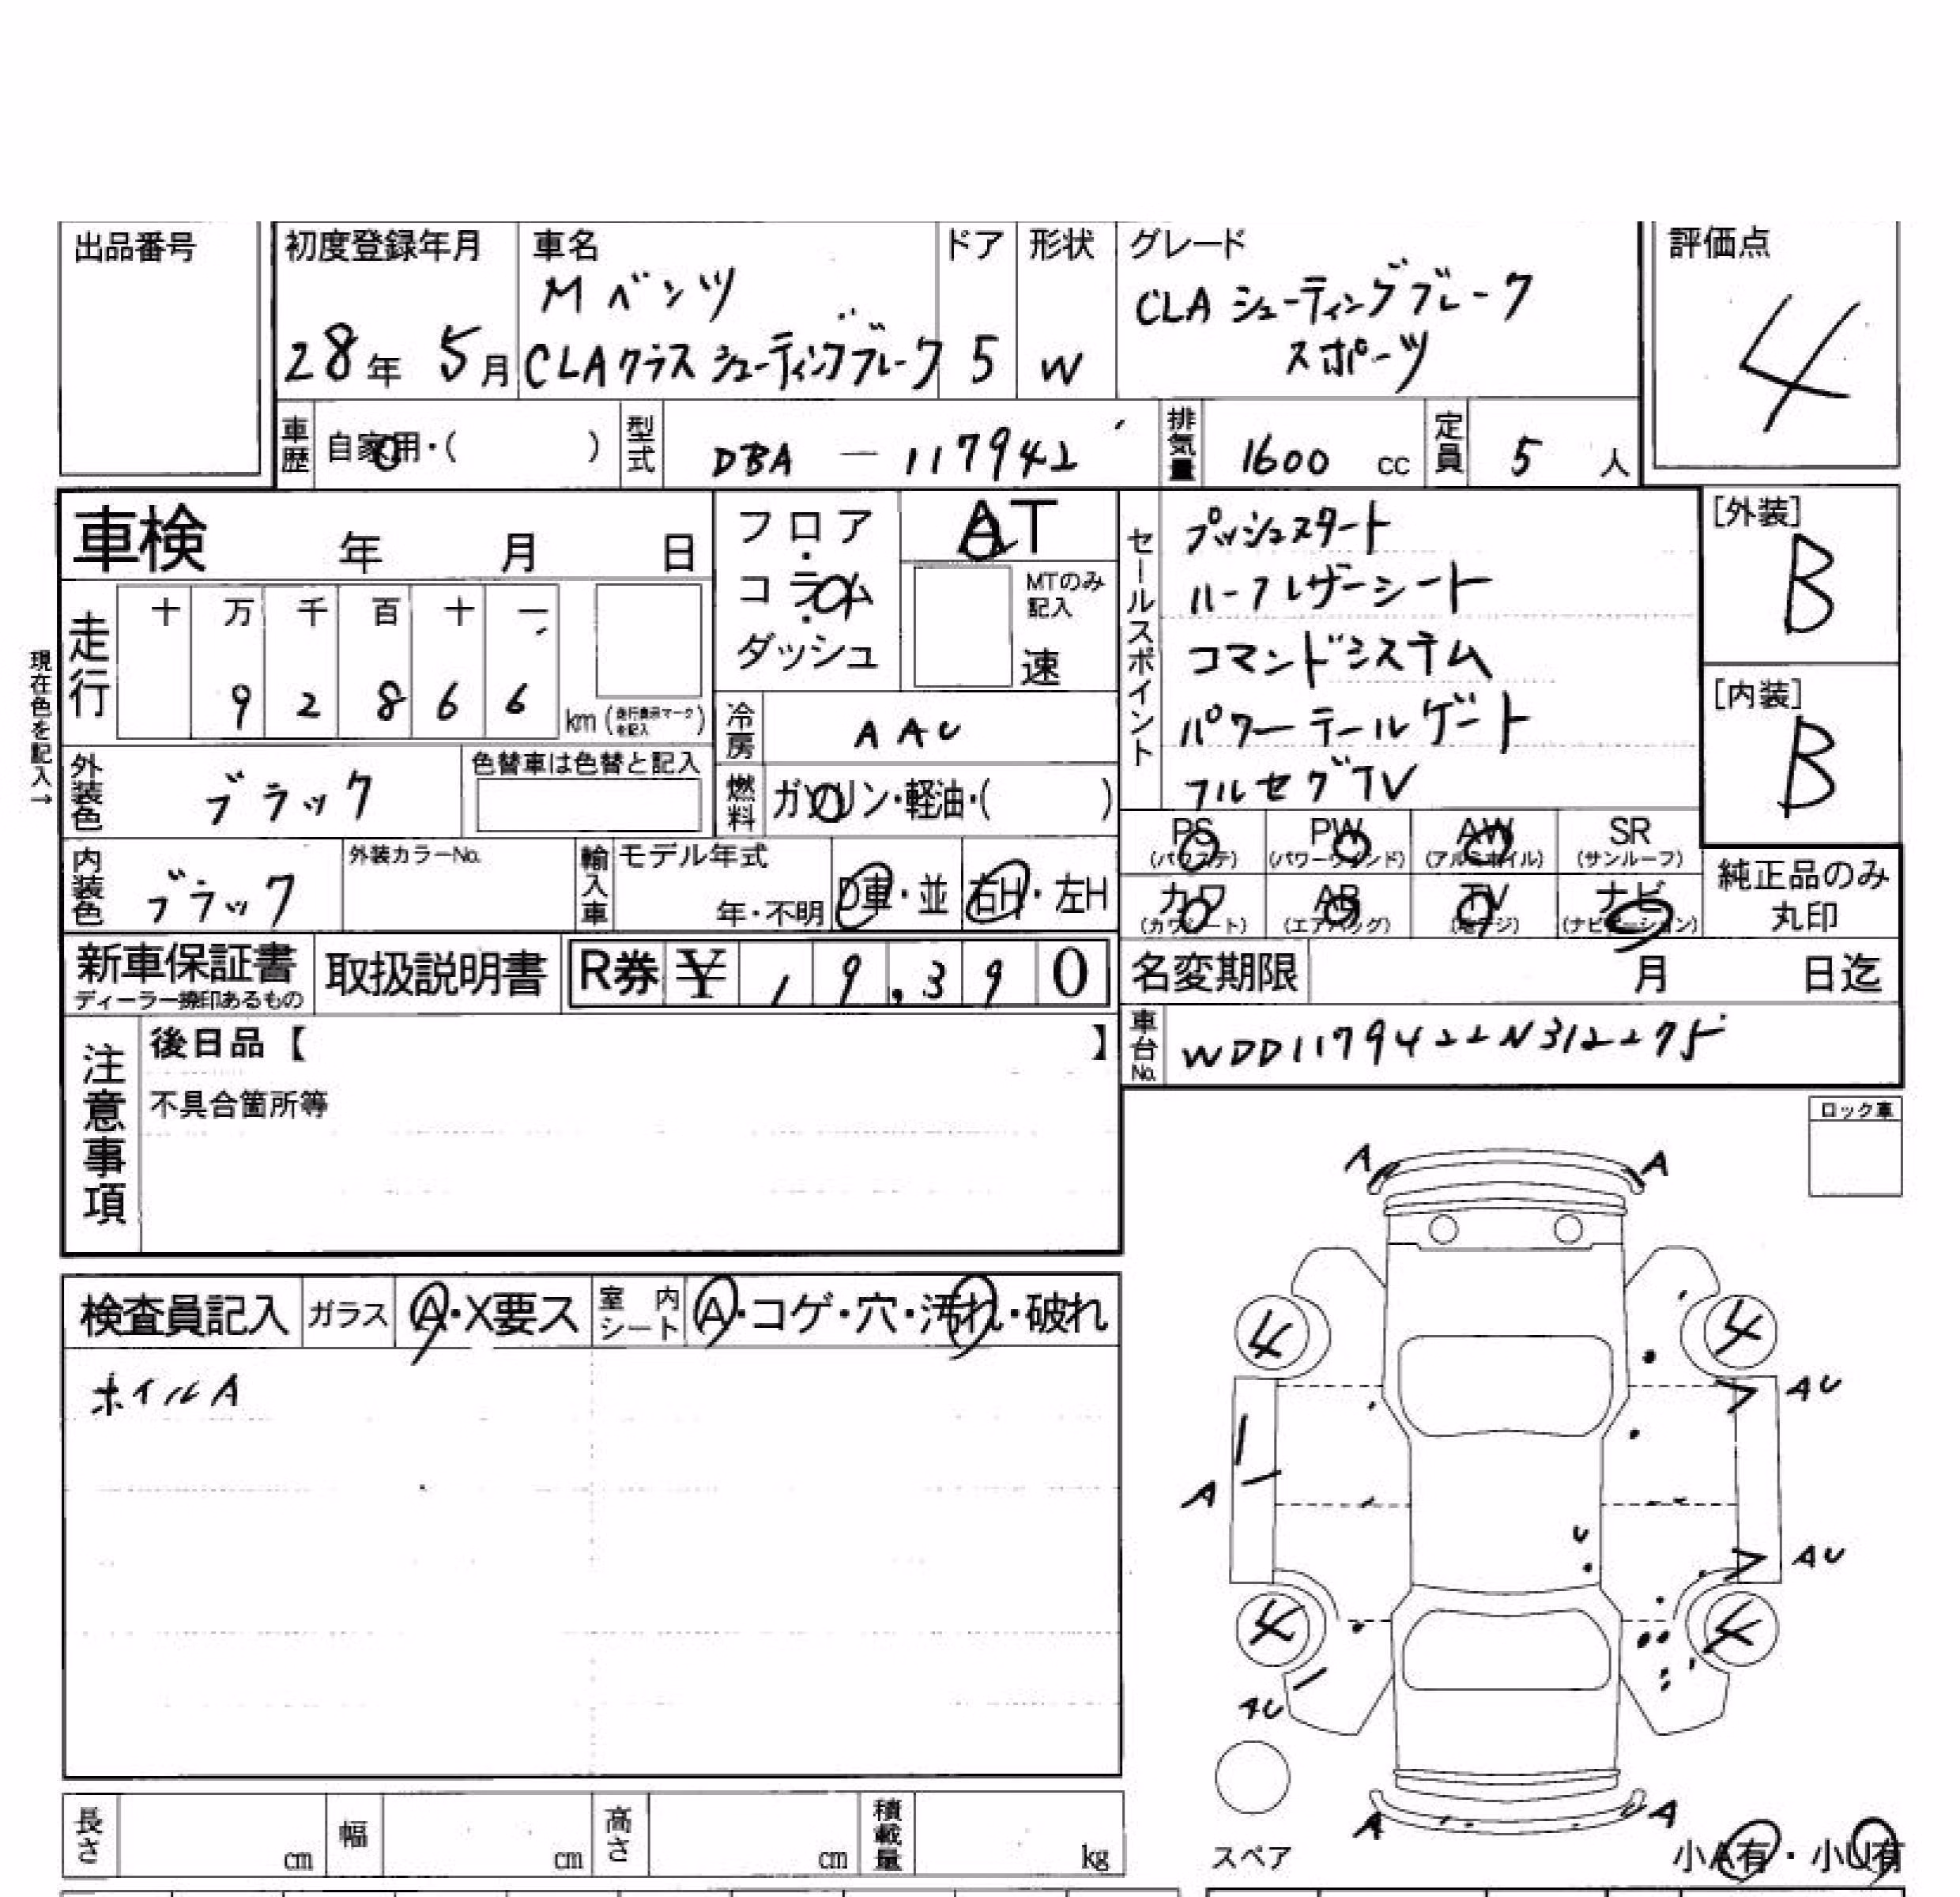 出品番号
初度登録年月
28年 5月
車名
Mベンツ
CLAクラス シューティングブレーク
ドア
5
形状
W
グレード
CLA シューティングブレーク
スポーツ
評価点
4
車歴
自家用・( )
型式
DBA - 117942
排気量
1600 cc
定員
5 人
車検 年 月 日
フロア
・
コラム
・
ダッシュ
AT
MTのみ
記入
速
セールスポイント
プッシュスタート
ハーフレザーシート
コマンドシステム
パワーテールゲート
フルセグTV
[外装]
B
[内装]
B
現在色を記入→
走行
十 万 千 百 十 一
9 2 8 6 6
km (走行表示マークを記入)
冷房
AAC
外装色
ブラック
色替車は色替と記入
燃料
ガソリン・軽油・( )
内装色
ブラック
外装カラーNo.
輸入車
モデル年式
年・不明
D車・並
右H・左H
PS
(パワステ)
PW
(パワーウインド)
AW
(アルミホイル)
SR
(サンルーフ)
カワ
(カワシート)
AB
(エアバッグ)
TV
(地デジ)
ナビ
(ナビゲーション)
純正品のみ
丸印
新車保証書
ディーラー捺印あるもの
取扱説明書
R券 ¥ 19,390
名変期限 月 日迄
車台No.
WDD1179422N312275
注意事項
後日品【 】
不具合箇所等
ロック車
検査員記入
ガラス
A・X要ス
室内シート
A・コゲ・穴・汚れ・破れ
ホイルA
A A
4 4
AU
A
U
AU
4 4
AU
A A
スペア
小A有・小U有
長さ cm
幅 cm
高さ cm
積載量 kg